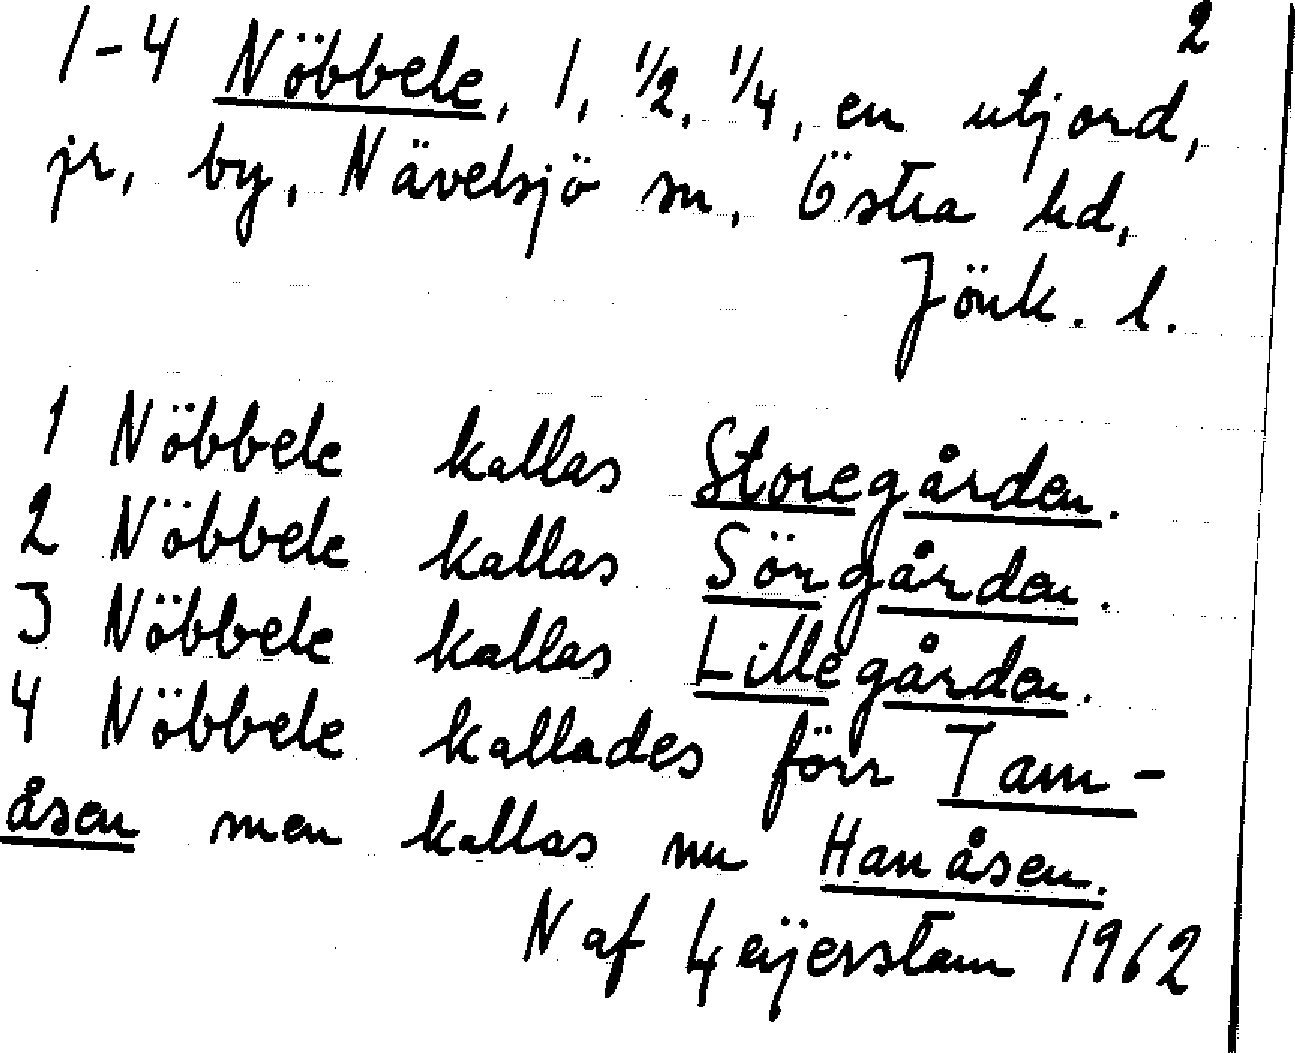 2
1-4 Nöbbele, 1, 1/2, 1/4, en utjord,
jr, by, Nävelsjö sn, Östra hd,
Jönk. l.
1 Nöbbele kallas Storegården.
2 Nöbbele kallas Sörgården.
3 Nöbbele kallas Lillegården.
4 Nöbbele kallades förr Tam-
åsen men kallas nu Hanåsen.
N af Geijerstam 1962